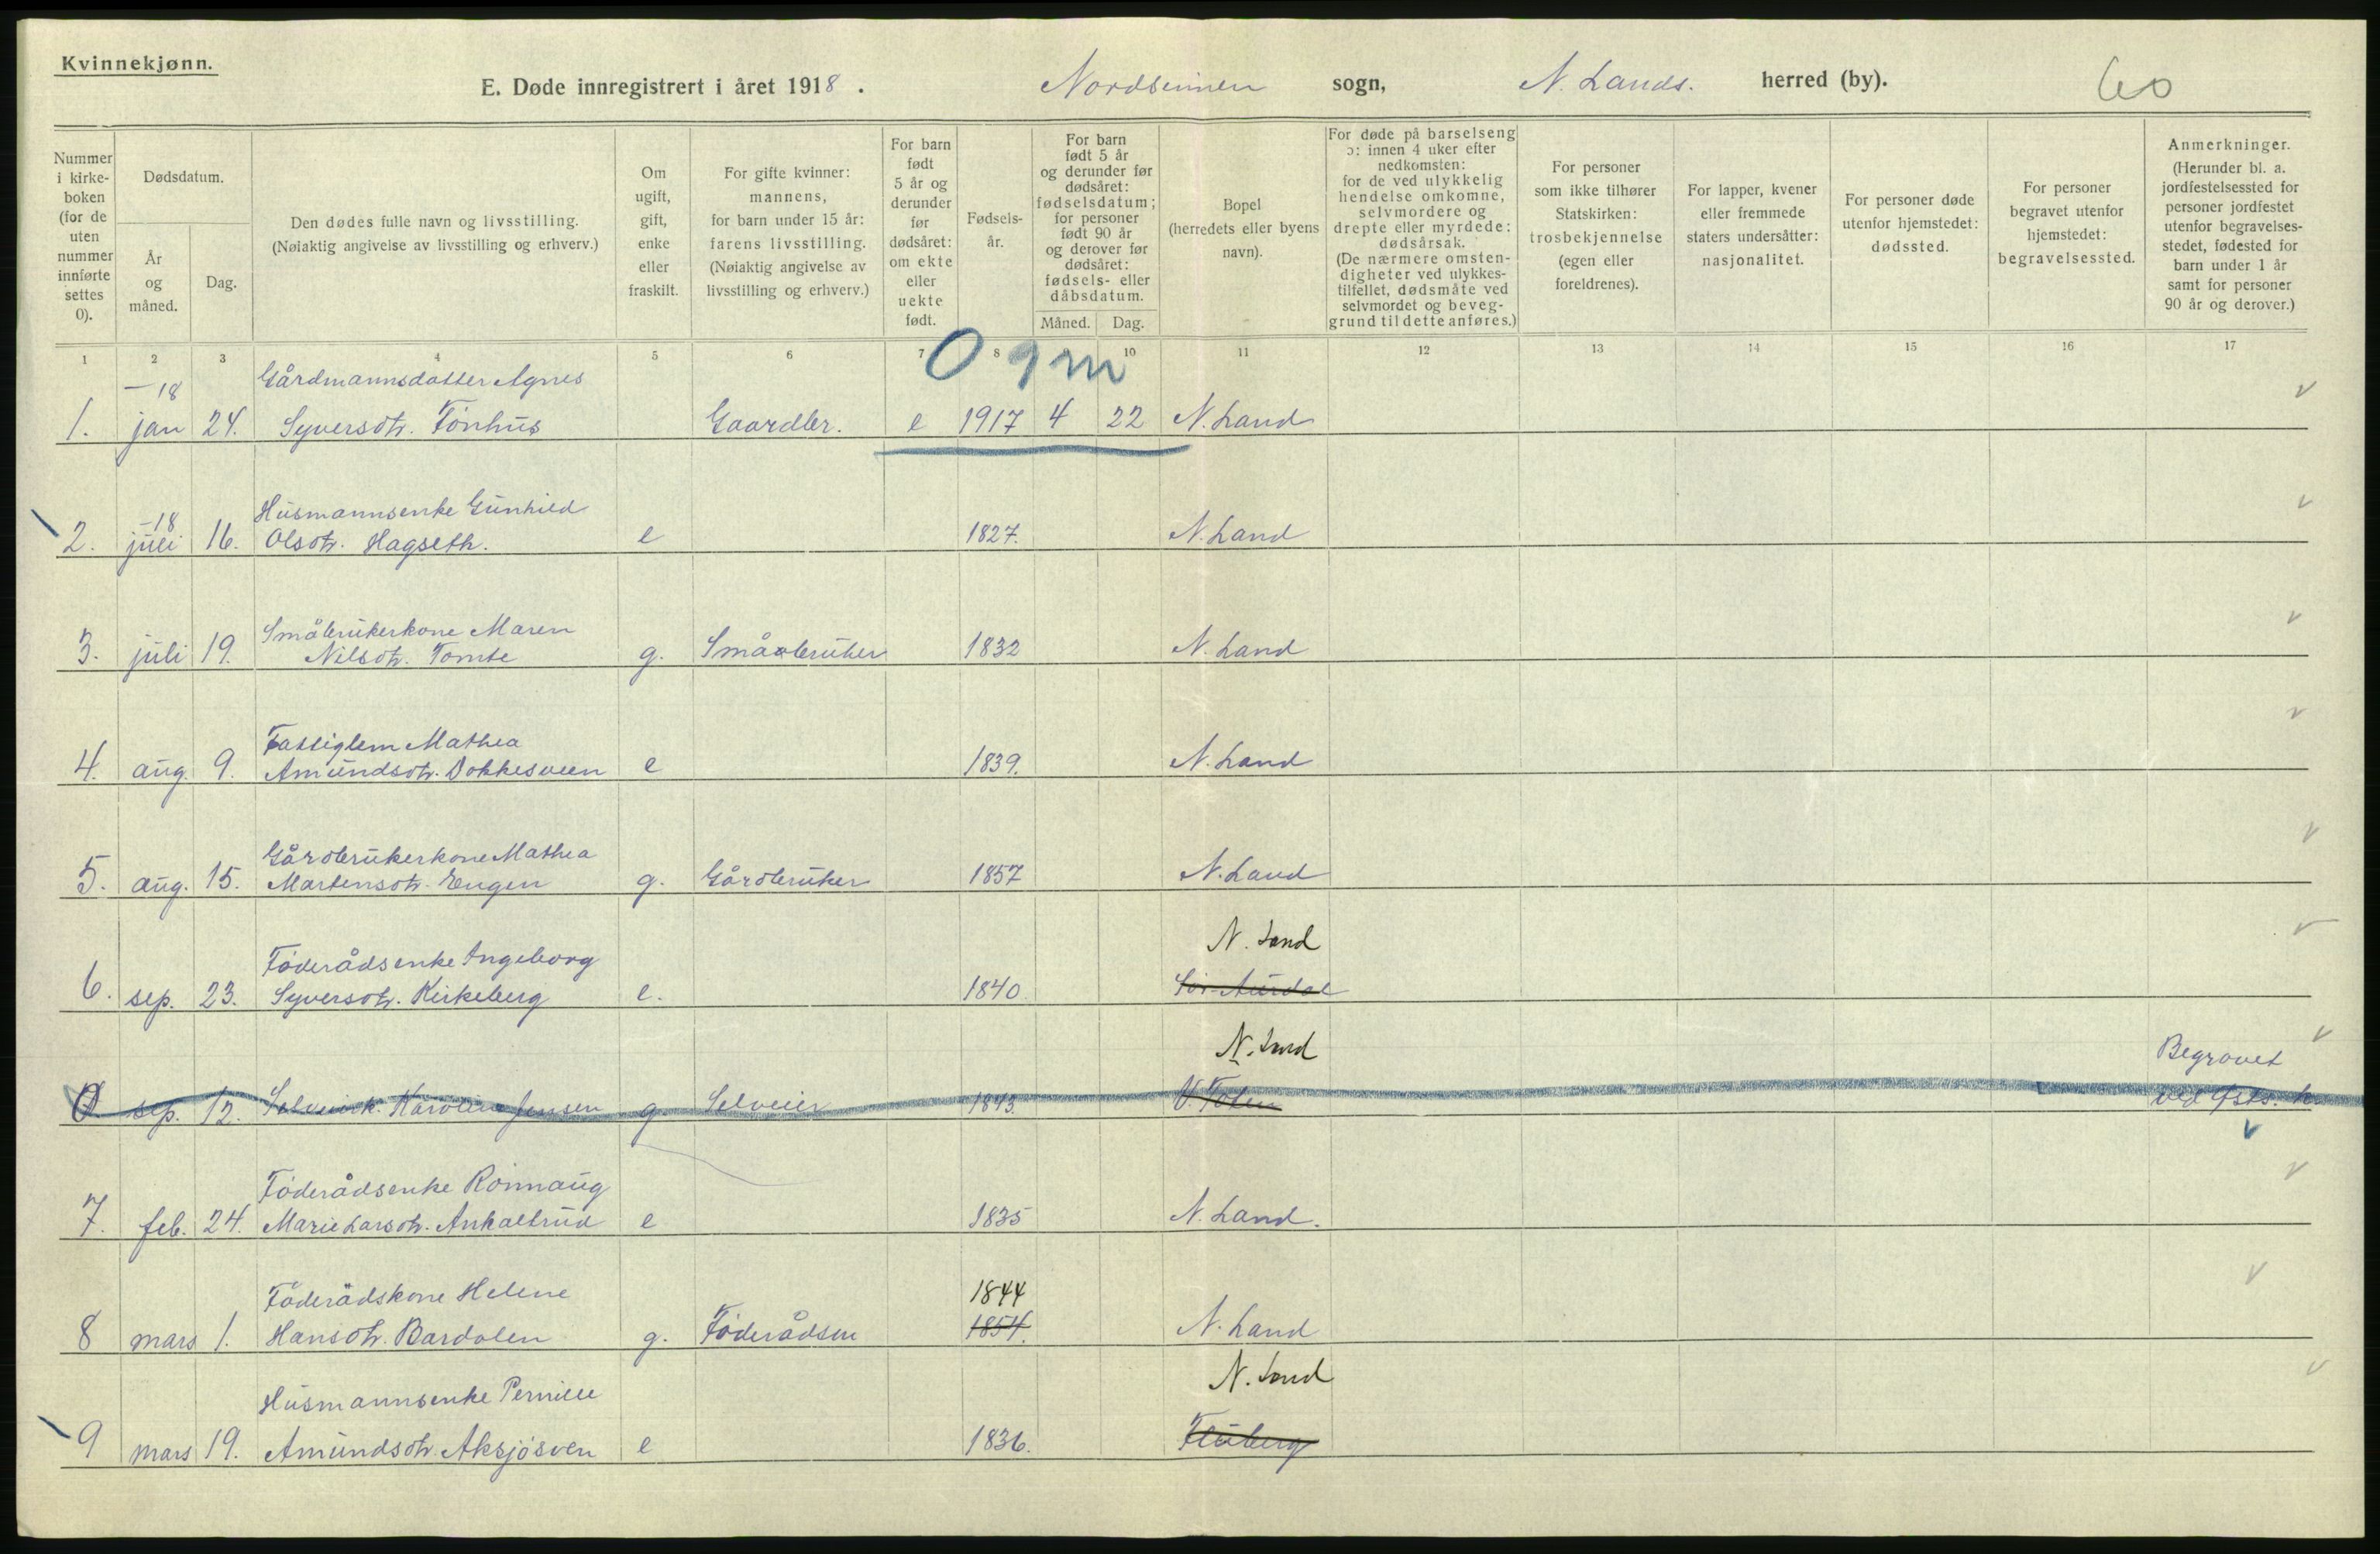 Kvinnekjønn.
E. Døde innregistrert i året 1918. Nordsinnen sogn, N. Lands. herred (by). 60
Nummer i kirke- boken (for de uten nummer innførte settes 0).
Dødsdatum.
År og måned.
Dag.
Den dødes fulle navn og livsstilling.
(Nøiaktig angivelse av livsstilling og erhverv.)
Om ugift, gift, enke eller fraskilt.
For gifte kvinner: mannens, for barn under 15 år: farens livsstilling. (Nøiaktig angivelse av livsstilling og erhverv.)
For barn født 5 år og derunder før dødsåret: om ekte eller uekte født.
Fødsels- år.
For barn født 5 år og derunder før dødsåret: fødselsdatum; for personer født 90 år og derover før dødsåret: fødsels- eller dåbsdatum.
Måned. Dag.
Bopel (herredets eller byens navn).
For døde på barselseng ɔ: innen 4 uker efter nedkomsten: for de ved ulykkelig hendelse omkomne, selvmordere og drepte eller myrdede: dødsårsak. (De nærmere omsten- digheter ved ulykkes- tilfellet, dødsmåte ved selvmordet og beveg- grund til dette anføres.)
For personer som ikke tilhører Statskirken: trosbekjennelse (egen eller foreldrenes).
For lapper, kvener eller fremmede staters undersåtter: nasjonalitet.
For personer døde utenfor hjemstedet: dødssted.
For personer begravet utenfor hjemstedet: begravelsessted.
Anmerkninger. (Herunder bl. a. jordfestelsessted for personer jordfestet utenfor begravelses- stedet, fødested for barn under 1 år samt for personer 90 år og derover.)
1 2 3 4 5 6 7 8 9 10 11 12 13 14 15 16 17
0 9 m
-18 Gårdmannsdatter Agnes
1. jan 24. Syversdtr. Tönhus Gaardbr. e 1917 4 22 N. Land
-18 Husmannsenke Gunhild
2. juli 16. Olsdtr. Hagseth. e 1827. N. Land
Småbrukerkone Maren
3. juli 19. Nilsdtr. Tomte g. Småbruker 1832 N. Land
Fattiglem Mathea
4. aug. 9. Amundsdtr. Dokkesveen e 1839. N. Land
Gårdbrukerkone Mathea
5. aug. 15. Martensdtr. Engen g. Gårdbruker 1857 N. Land
Föderådsenke Ingeborg N. Land
6. sep. 23. Syversdtr. Kirkeberg e. 1840. Sör-Aurdal
N. Land Begravet
0 sep. 12. Selveierk. Karoline Jensen g. Selveier 1843. V. Toten ved
Föderådsenke Rönnaug
7. feb. 24. Marie Larsdtr. Ankaltrud e 1835 N. Land.
Föderådskone Helene 1844
8 mars 1. Hansdtr. Bardalen g. Föderådsm 1854. N. Land
Husmannsenke Pernille N. Land
9 mars 19. Amundsdtr. Aksjösven e 1836. Fluberg